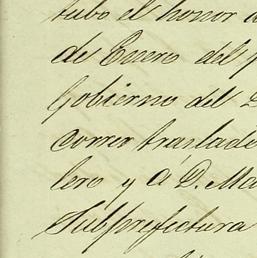 tubo el honor d
de Enero del p
Gobierno del D
correr traslado
lero y á D. Ma
Subprefectura